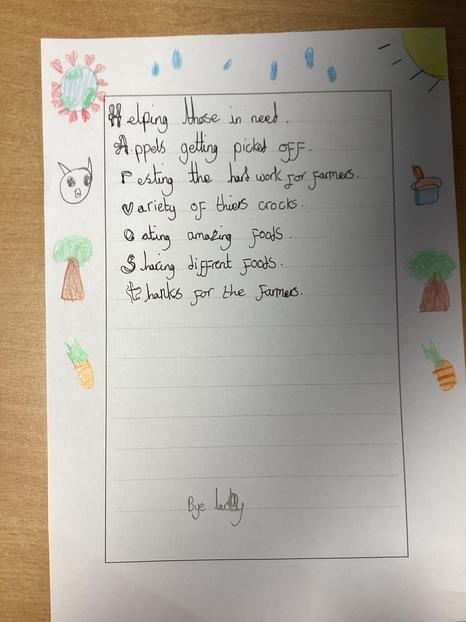 Helping those in need.
Appels getting picked off.
resting the hard work for farmers.
variety of thiers crocks.
eating amazing foods.
Sharing diffrent foods.
thanks for the farmers.
Bye